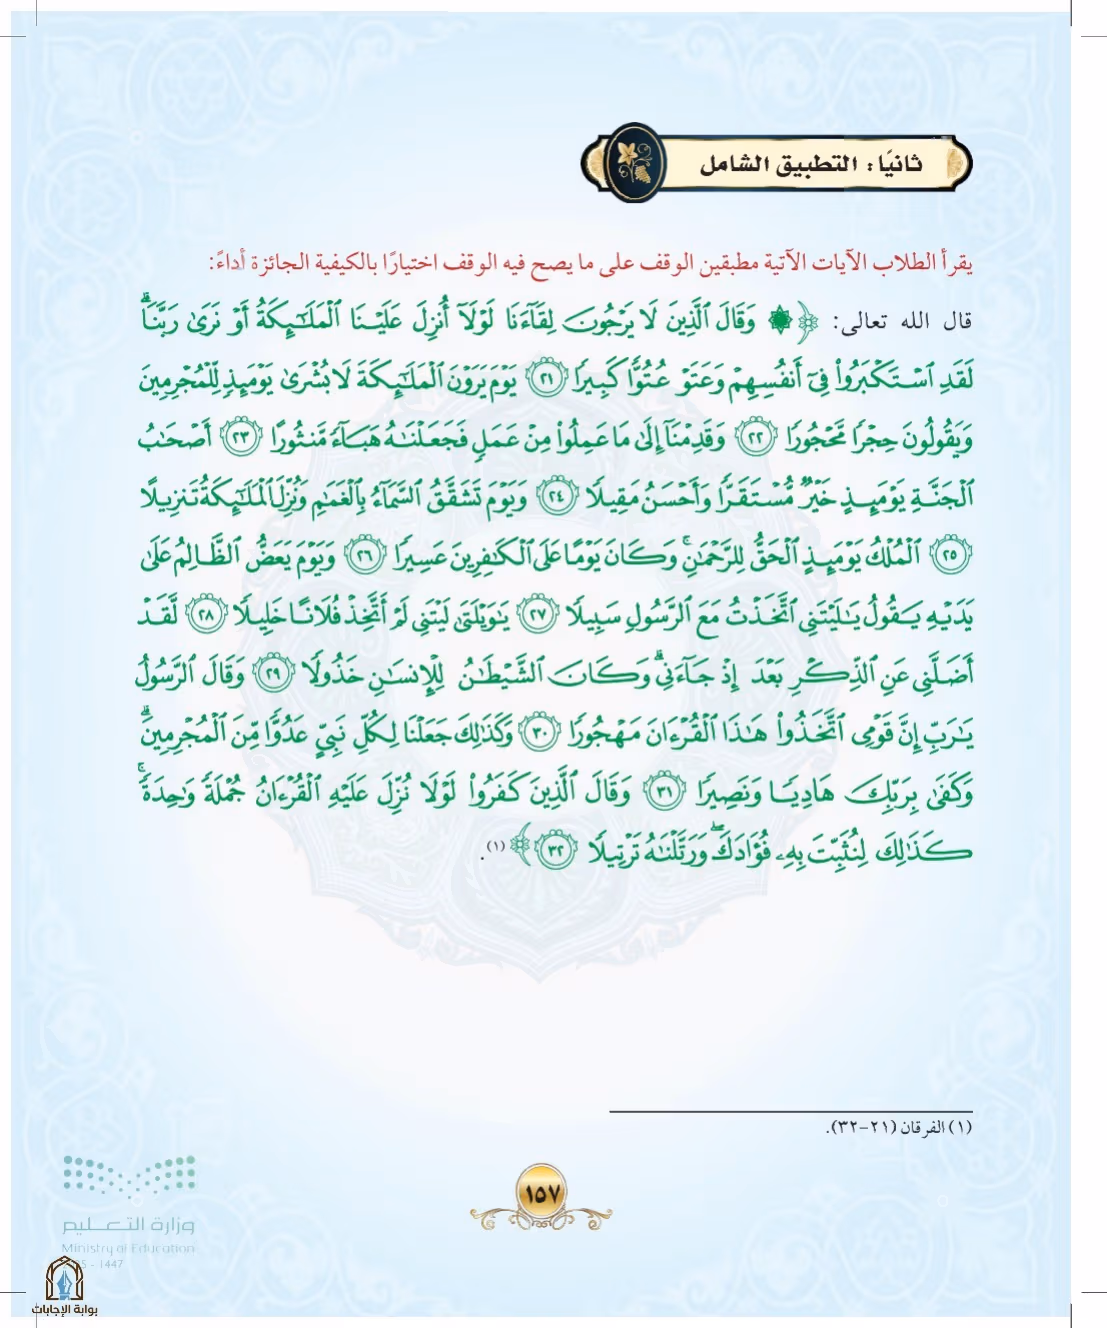 ثانيًا: التطبيق الشامل
يقرأ الطلاب الآيات الآتية مطبقين الوقف على ما يصح فيه الوقف اختيارًا بالكيفية الجائزة أداءً:
قال الله تعالى: ﴿ ۞ وَقَالَ ٱلَّذِينَ لَا يَرۡجُونَ لِقَآءَنَا لَوۡلَآ أُنزِلَ عَلَيۡنَا ٱلۡمَلَٰٓئِكَةُ أَوۡ نَرَىٰ رَبَّنَاۗ
لَقَدِ ٱسۡتَكۡبَرُواْ فِيٓ أَنفُسِهِمۡ وَعَتَوۡ عُتُوّٗا كَبِيرٗا ٢١ يَوۡمَ يَرَوۡنَ ٱلۡمَلَٰٓئِكَةَ لَا بُشۡرَىٰ يَوۡمَئِذٖ لِّلۡمُجۡرِمِينَ
وَيَقُولُونَ حِجۡرٗا مَّحۡجُورٗا ٢٢ وَقَدِمۡنَآ إِلَىٰ مَا عَمِلُواْ مِنۡ عَمَلٖ فَجَعَلۡنَٰهُ هَبَآءٗ مَّنثُورًا ٢٣ أَصۡحَٰبُ
ٱلۡجَنَّةِ يَوۡمَئِذٍ خَيۡرٞ مُّسۡتَقَرّٗا وَأَحۡسَنُ مَقِيلٗا ٢٤ وَيَوۡمَ تَشَقَّقُ ٱلسَّمَآءُ بِٱلۡغَمَٰمِ وَنُزِّلَ ٱلۡمَلَٰٓئِكَةُ تَنزِيلًا
٢٥ ٱلۡمُلۡكُ يَوۡمَئِذٍ ٱلۡحَقُّ لِلرَّحۡمَٰنِۚ وَكَانَ يَوۡمًا عَلَى ٱلۡكَٰفِرِينَ عَسِيرٗا ٢٦ وَيَوۡمَ يَعَضُّ ٱلظَّالِمُ عَلَىٰ
يَدَيۡهِ يَقُولُ يَٰلَيۡتَنِي ٱتَّخَذۡتُ مَعَ ٱلرَّسُولِ سَبِيلٗا ٢٧ يَٰوَيۡلَتَىٰ لَيۡتَنِي لَمۡ أَتَّخِذۡ فُلَانًا خَلِيلٗا ٢٨ لَّقَدۡ
أَضَلَّنِي عَنِ ٱلذِّكۡرِ بَعۡدَ إِذۡ جَآءَنِيۗ وَكَانَ ٱلشَّيۡطَٰنُ لِلۡإِنسَٰنِ خَذُولٗا ٢٩ وَقَالَ ٱلرَّسُولُ
يَٰرَبِّ إِنَّ قَوۡمِي ٱتَّخَذُواْ هَٰذَا ٱلۡقُرۡءَانَ مَهۡجُورٗا ٣٠ وَكَذَٰلِكَ جَعَلۡنَا لِكُلِّ نَبِيٍّ عَدُوّٗا مِّنَ ٱلۡمُجۡرِمِينَۗ
وَكَفَىٰ بِرَبِّكَ هَادِيٗا وَنَصِيرٗا ٣١ وَقَالَ ٱلَّذِينَ كَفَرُواْ لَوۡلَا نُزِّلَ عَلَيۡهِ ٱلۡقُرۡءَانُ جُمۡلَةٗ وَٰحِدَةٗۚ
كَذَٰلِكَ لِنُثَبِّتَ بِهِۦ فُؤَادَكَۖ وَرَتَّلۡنَٰهُ تَرۡتِيلٗا ٣٢ ﴾ (١).
(١) الفرقان (٢١-٣٢).
١٥٧
وزارة التعليم
Ministry of Education
- 1447
بوابة الإجابات